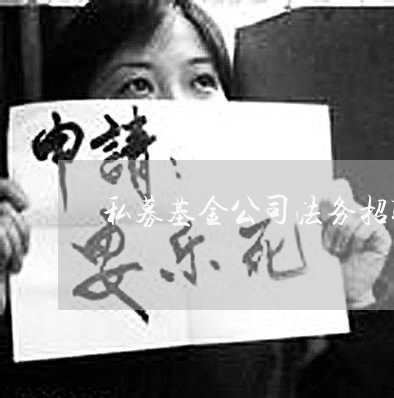 申請:
私募基金公司法务招
安乐死